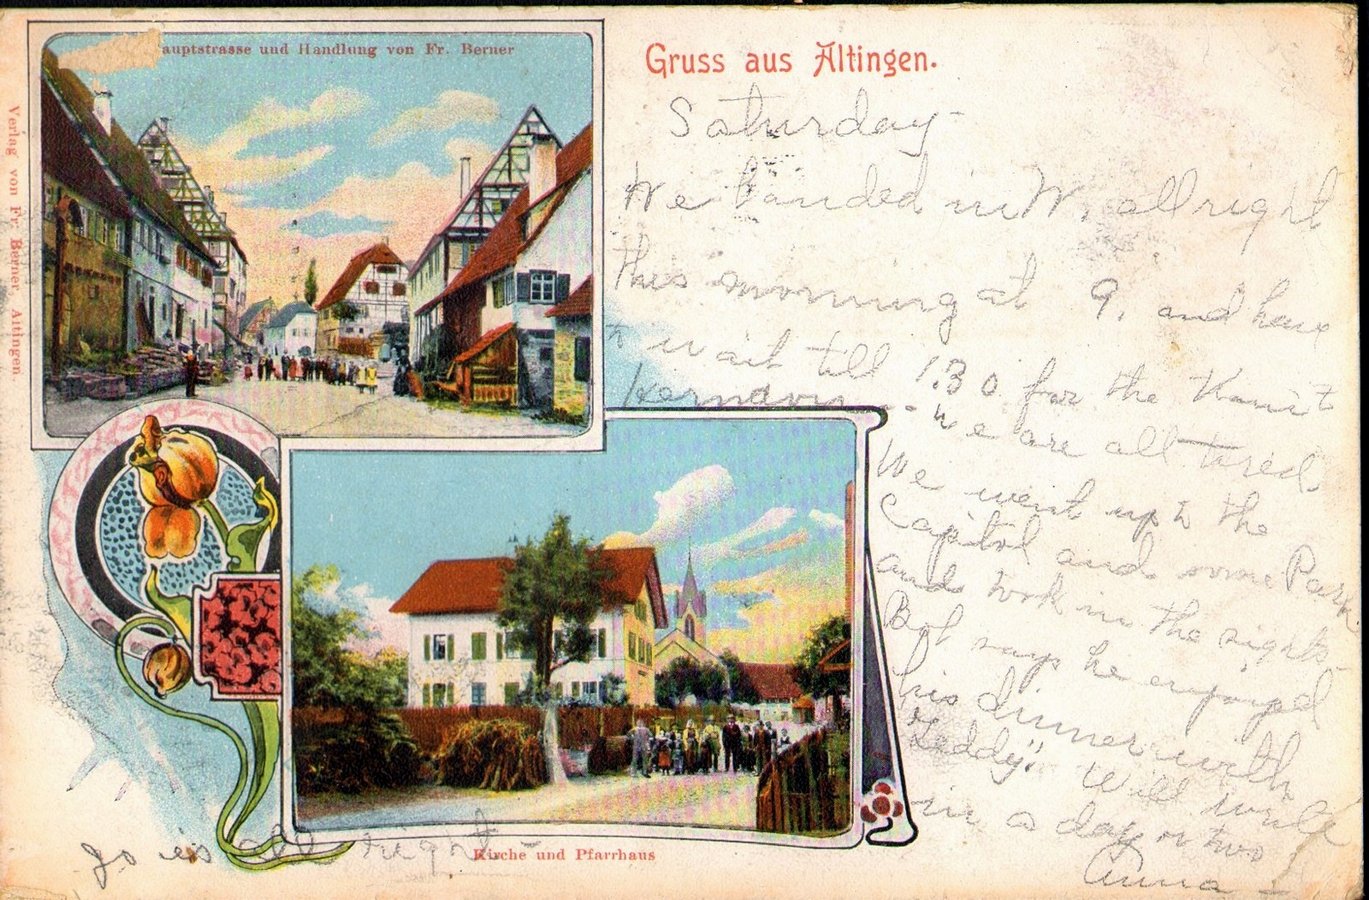 auptstrasse und Handlung von Fr. Berner
Gruss aus Altingen.
Verlag von Fr. Berner, Altingen.
Saturday
We landed in W. all right
this morning at 9, and have
wait till 1.30 for the
We are all tired
We went up to the
Capitol and some Park
and took in the sights
Bob says he enjoyed
his dinner with
"Teddy". Will write
in a day or two
Anna
Jo is all right
Kirche und Pfarrhaus